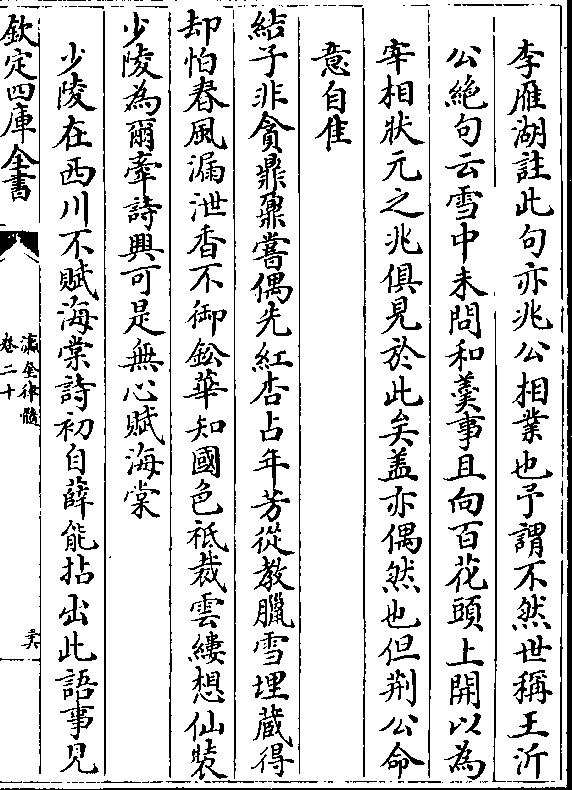 李雁湖註此句亦兆公相業也予謂不然世稱王沂
公絶句云雪中未問和羮事且向百花頭上開以為
宰相狀元之兆俱見於此矣盖亦偶然也但荆公命
意自佳
結子非貪鼎鼐嘗偶先紅杏占年芳從教臘雪埋藏得
却怕春風漏泄香不御鈆華知國色祗裁雲縷想仙裝
少陵為爾牽詩興可是無心賦海棠
少陵在西川不賦海棠詩初自薛能拈出此語事見
欽定四庫全書
瀛奎律髓
卷二十